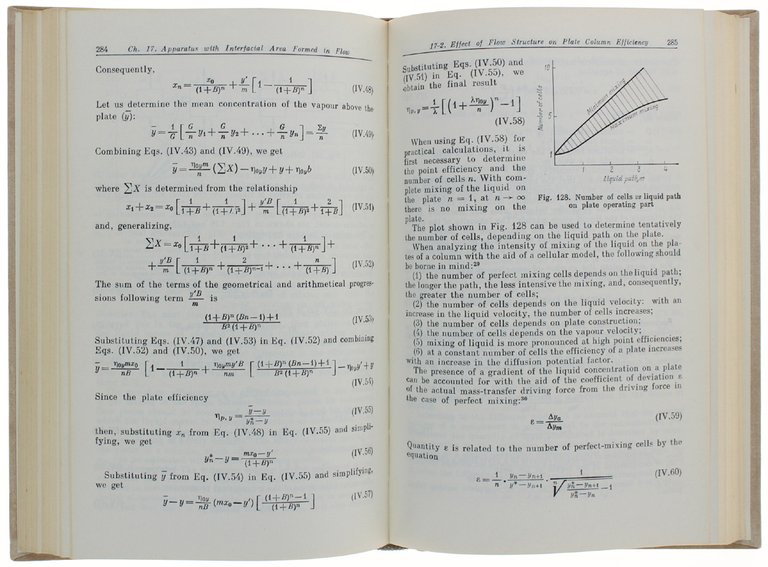 284 Ch. 17. Apparatus with Interfacial Area Formed in Flow
Consequently,
xₙ = x₀/(1+B)ⁿ + y′/m [1 − 1/(1+B)ⁿ] (IV.48)
Let us determine the mean concentration of the vapour above the
plate (ȳ):
ȳ = 1/G [G/n y₁ + G/n y₂ + . . . + G/n yₙ] = Σy/n (IV.49)
Combining Eqs. (IV.43) and (IV.49), we get
(IV.50)
where ∑X is determined from the relationship
x₁ + x₂ = x₀ [1/(1+B) + 1/(1+B)²] + y′B/m [1/(1+B)² + 2/(1+B)] (IV.51)
and, generalizing,
∑X = x₀ [1/(1+B) + 1/(1+B)² + . . . + 1/(1+B)ⁿ] +
+ y′B/m [1/(1+B)ⁿ + 2/(1+B)ⁿ⁻¹ + . . . + n/(1+B)] (IV.52)
The sum of the terms of the geometrical and arithmetical progres-
sions following term y′B/m is
(1+B)ⁿ (Bn−1)+1 / B² (1+B)ⁿ (IV.53)
Substituting Eqs. (IV.47) and (IV.53) in Eq. (IV.52) and combining
Eqs. (IV.52) and (IV.50), we get
(IV.54)
Since the plate efficiency
ηp, y = (ȳ−y)/(y*ₙ−y) (IV.55)
then, substituting xₙ from Eq. (IV.48) in Eq. (IV.55) and simpli-
fying, we get
y*ₙ − y = (mx₀−y′)/(1+B)ⁿ (IV.56)
Substituting ȳ from Eq. (IV.54) in Eq. (IV.55) and simplifying,
we get
ȳ − y = η₀y/nB (mx₀ − y′) [(1+B)ⁿ−1 / (1+B)ⁿ] (IV.57)
17-2. Effect of Flow Structure on Plate Column Efficiency 285
Substituting Eqs. (IV.50) and
(IV.51) in Eq. (IV.55), we
obtain the final result
ηp, y = 1/λ [(1 + λη₀y/n)ⁿ − 1]
(IV.58)
When using Eq. (IV.58) for
practical calculations, it is
first necessary to determine
the point efficiency and the
number of cells n. With com-
plete mixing of the liquid on
the plate n = 1, at n → ∞
there is no mixing on the
plate.
Number of cells
10
5
1
Minimum mixing
Maximum mixing
1 2 3 4
Liquid path, m
Fig. 128. Number of cells vs liquid path
on plate operating part
The plot shown in Fig. 128 can be used to determine tentatively
the number of cells, depending on the liquid path on the plate.
When analyzing the intensity of mixing of the liquid on the pla-
tes of a column with the aid of a cellular model, the following should
be borne in mind:²⁹
(1) the number of perfect mixing cells depends on the liquid path;
the longer the path, the less intensive the mixing, and, consequently,
the greater the number of cells;
(2) the number of cells depends on the liquid velocity: with an
increase in the liquid velocity, the number of cells increases;
(3) the number of cells depends on plate construction;
(4) the number of cells depends on the vapour velocity;
(5) mixing of liquid is more pronounced at high point efficiencies;
(6) at a constant number of cells the efficiency of a plate increases
with an increase in the diffusion potential factor.
The presence of a gradient of the liquid concentration on a plate
can be accounted for with the aid of the coefficient of deviation ε
of the actual mass-transfer driving force from the driving force in
the case of perfect mixing:³⁰
ε = Δyₐ/Δyₘ (IV.59)
Quantity ε is related to the number of perfect-mixing cells by the
equation
(IV.60)